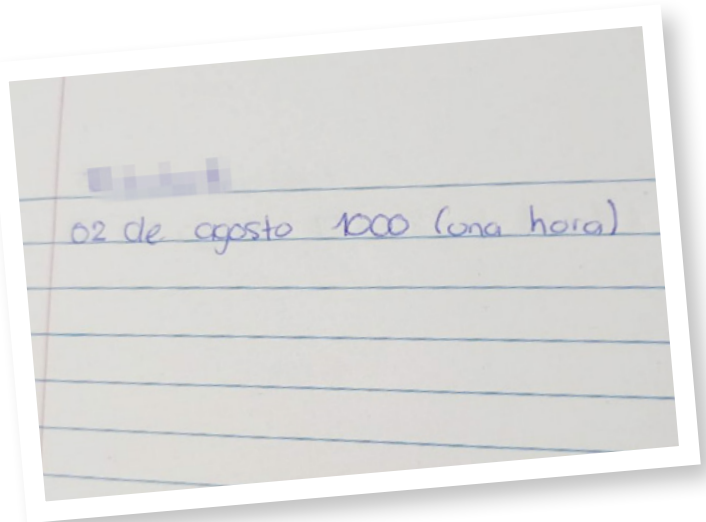 02 de agosto 1000 (una hora)